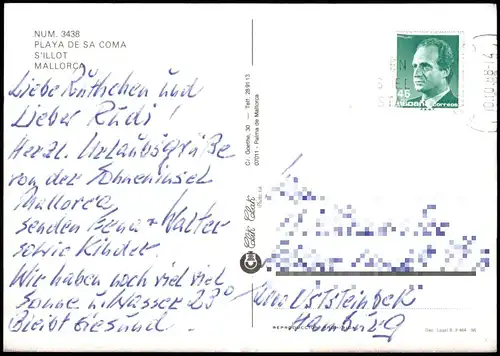 NUM. 3438
PLAYA DE SA COMA
S'ILLOT
MALLORCA
Liebe Rüthchen und
Lieber Rudi!
Herzl. Urlaubsgrüße
von der Sonneninsel
Mallorca
senden Lena + Walter
sowie Kinder.
Wir haben noch viel viel
Sonne u. Wasser 23°
Bleibt Gesund
C/. Goethe, 30 — Telf. 28 91 13
07011 - Palma de Mallorca
Clik Clak
45
ESPAÑA correos
10.10.86-14
Hamburg